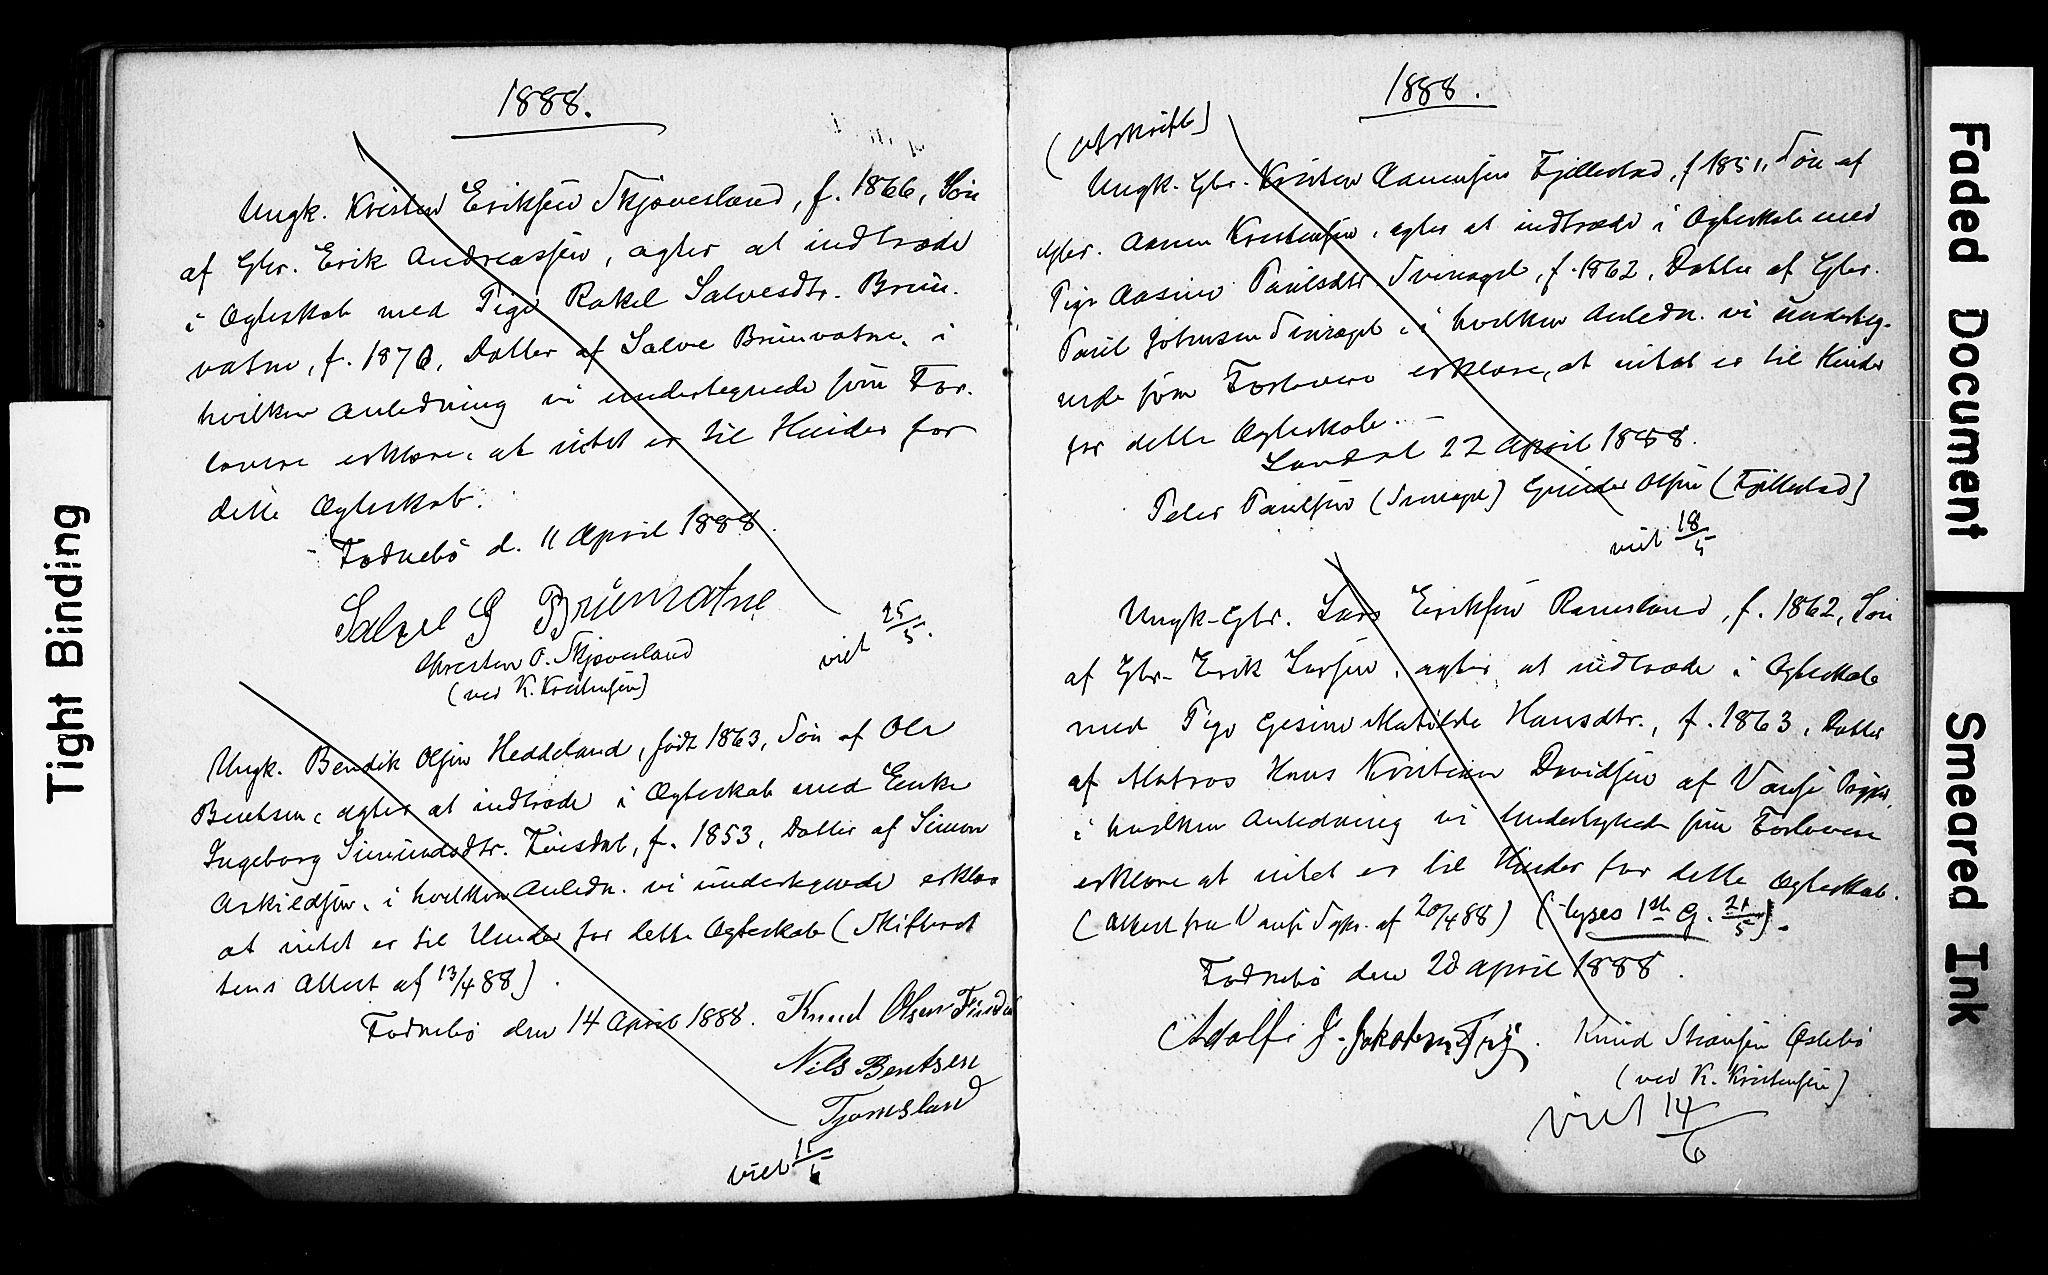 Tight Binding
1888.
Ungk. Kristen Eriksen Skjævesland, f. 1866, Søn
af Gbr. Erik Andreassen, agter at indtræde
i Ægteskab med Pige Rakel Salvesdtr. Brün-
vatne, f. 1870, Datter af Salve Brünvatne, i
hvilken Anledning vi undertegnede som For-
lovere erklære, at intet er til Hinder for
dette Ægteskab.
Fodnebö d. 11 April 1888.
Salve G Brüvatne
Chresten O. Skjævesland
(ved K. Kristensen)
viet 25/5.
Ungk. Bendik Olsen Heddeland, født 1863, Søn af Ole
Bentsen, agter at indtræde i Ægteskab med Enke
Ingeborg Simundsdtr. Finsdal, f. 1853, Datter af Simon
Askildsen, i hvilken Anledn. vi undertegnede erklær
at intet er til Hinder for dette Ægteskab (Skifteret
tens Attest af 13/4 88)
Fodnebö den 14 April 1888. Knud Olsen
Nils Bentsen
Tjomsland
viet 15/6
1888.
(Afskrift)
Ungk. Gbr. Kristen Aanensen Fjellestad, f 1851, Søn af
Gbr. Aanen Kristensen, agter at indtræde i Ægteskab med
Pige Aasine Paulsdtr. Svinagel, f. 1862, Datter af Gbr.
Paul Johnsen Svinagel, i hvilken Anledn. vi underteg-
nede som Forlovere erklære, at intet er til Hinder
for dette Ægteskab. –
Landal 22 April 1888.
Peter Paulsen (Svinagel) Gunder Olsen (Fjellestad)
viet 18/5
Ungk. Gbr. Lars Eriksen Rannesland, f. 1862, Søn
af Gbr. Erik Larsen, agter at indtræde i Ægteskab
med Pige Gesine Matilde Hansdtr., f. 1863, Datter
af Matros Hans Kristian Davidsen af Vanse Prgjld,
i hvilken Anledning vi undertegnede som Forlovere
erklære at intet er til Hinder for dette Ægteskab.
(Attest fra Vanse Sgkr. af 20/4 88) (lyses 1ste G. 21/5).
Fodnebö den 28 april 1888.
Adolf J. Jakobsen. Knud Olsen
(ved K. Kristensen)
viet 14/6
Faded Document
Smeared Ink